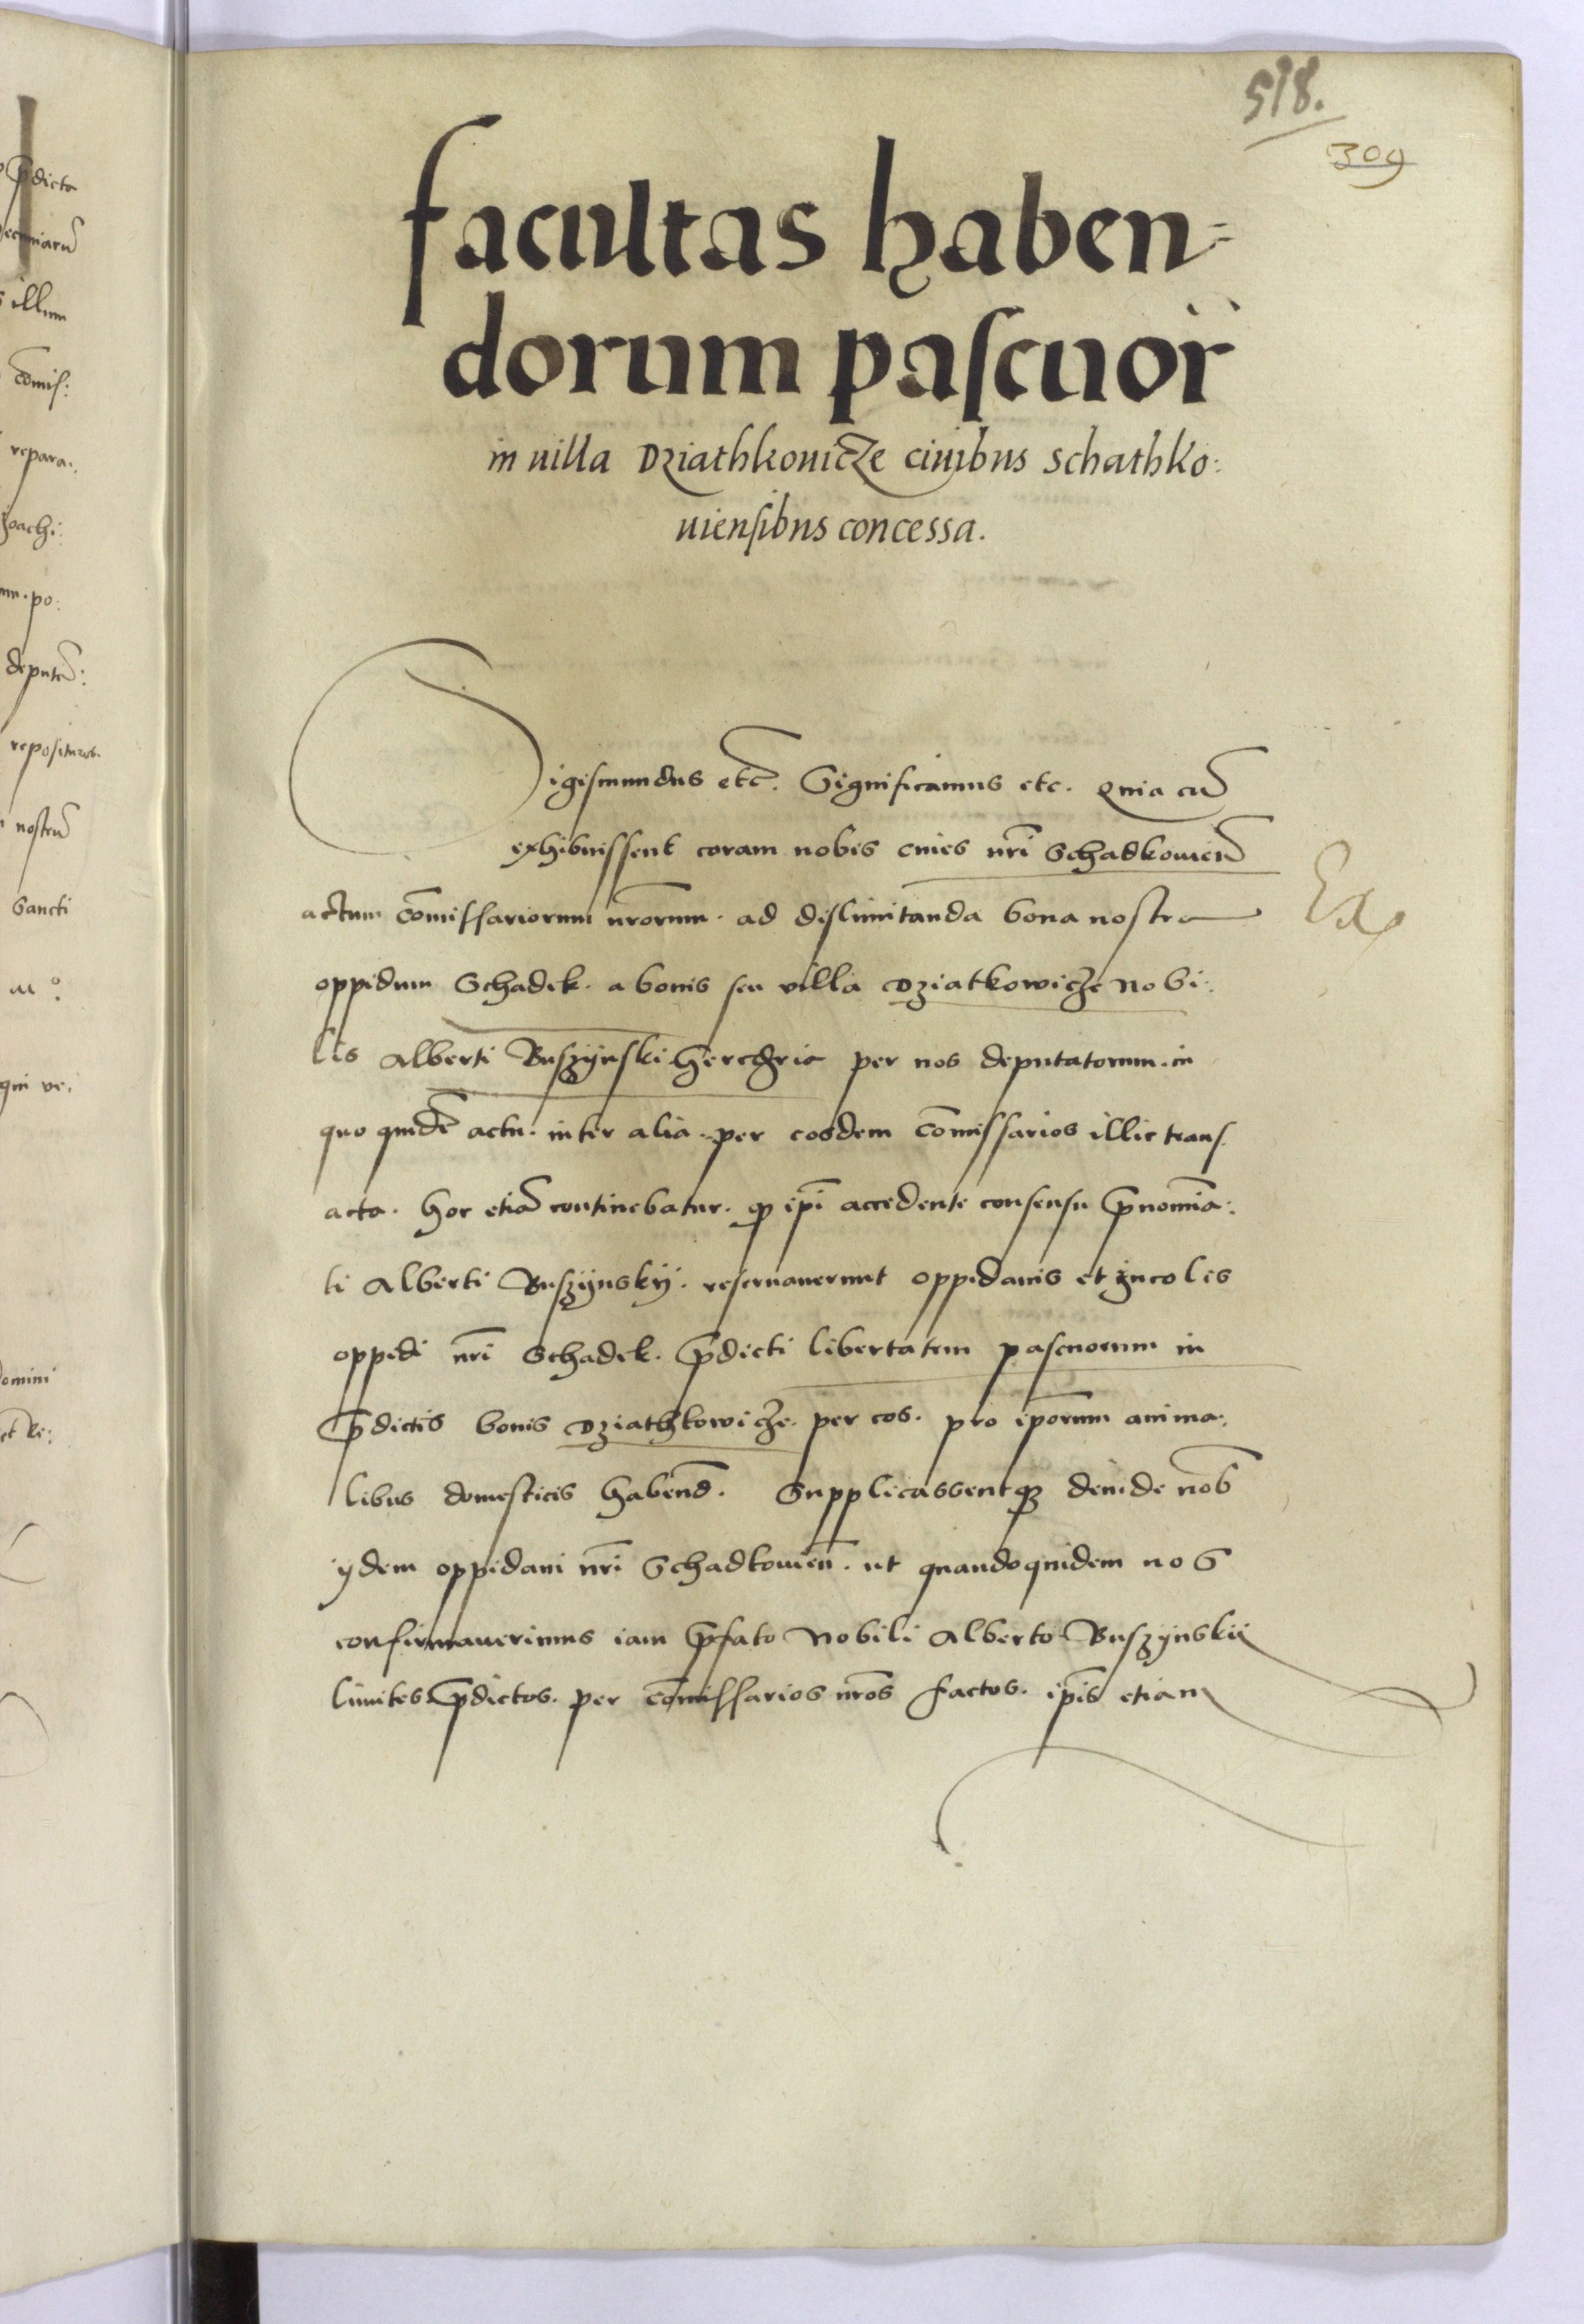 518.
309
facultas haben=
dorum pascuor̃
in uilla Dziathkouicze ciuibus Schathko:
uiensibus concessa.
Sigismundus etc̃. Significamus etc. Quia cũ
exhibuissent coram nobis ciues nr̃i Schadkouieñ
actum com̃issariorum nr̃orum. ad dislimitanda bona nostra
oppidum Schadek. a bonis seu villa Dziatkowicze Nobi:
lis Alberti Buszynski per nos deputatorum. in
quo quidẽ actu. inter alia. per eosdem com̃issarios illic trans
acta. hoc etiã continebatur. ꝙ ip̃i accedente consensu p̃nomina:
ti Alberti Buszÿnskÿ. reseruauerunt oppidanis et incolis
oppidi nr̃i Schadek. p̃dicti libertatem pascuorum in
p̃dictis bonis Dziathkowicze. per eos. pro ip̃orum anima:
libus domesticis habend̃. Supplicassentqꝫ deinde nob̃
ÿdem oppidani nr̃i Schadkouieñ. ut quandoquidem nos
confirmauerimus iam p̃fato Nobili Alberto Buszynskii
limites p̃dictos. per com̃issarios nr̃os factos. ip̃is etiam
p̃dicta
illum
com̃is:
repara:
po:
nostrũ
Sancti
qui ve: